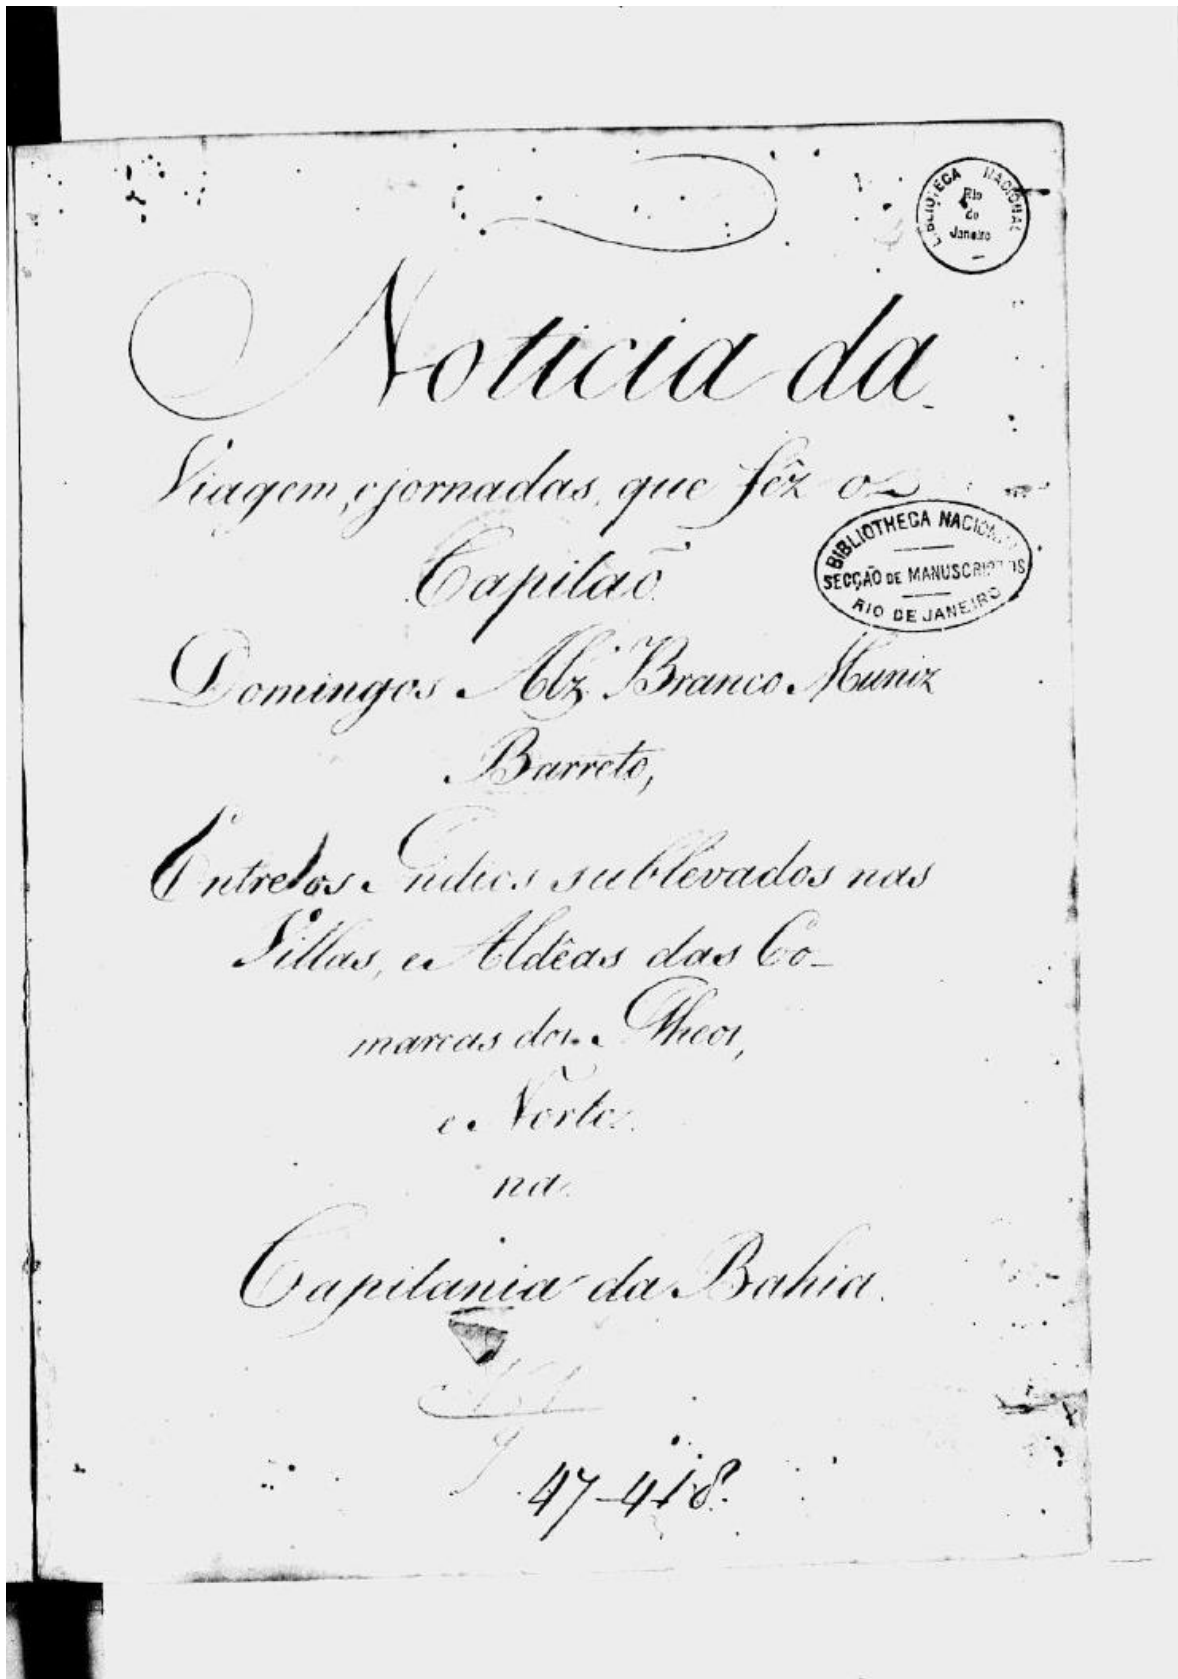 BIBLIOTECA NACIONAL
Rio
de
Janeiro
Noticia da
Viagem, e jornadas, que fêz o
Capitaõ
BIBLIOTHECA NACIONAL
SECÇÃO DE MANUSCRIPTOS
RIO DE JANEIRO
Domingos Alz Branco Muniz
Barreto,
Entre os Indios sublevados nas
Villas, e Aldêas das Co-
marcas dos Ilheos,
e Norte
na
Capitania da Bahia.
47-418.